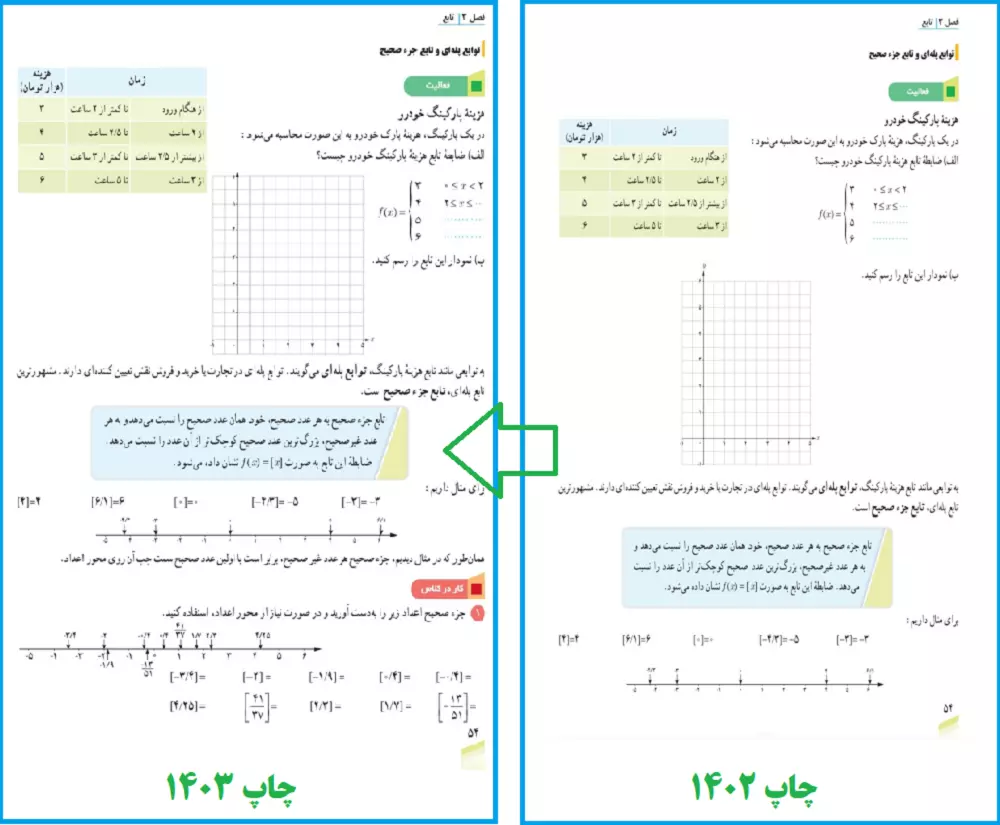 فصل ۲ | تابع
توابع پله‌ای و تابع جزء صحیح
فعالیت
هزینهٔ پارکینگ خودرو
در یک پارکینگ، هزینهٔ پارک خودرو به این صورت محاسبه می‌شود :
الف) ضابطهٔ تابع هزینهٔ پارکینگ خودرو چیست؟
زمان هزینه (هزار تومان)
از هنگام ورود تا کمتر از ۲ ساعت ۳
از ۲ ساعت تا ۲/۵ ساعت ۴
از بیشتر از ۲/۵ ساعت تا کمتر از ۳ ساعت ۵
از ۳ ساعت تا ۵ ساعت ۶
f(x) =
۳ ۰ ≤ x < ۲
۴ ۲ ≤ x ≤ ...
۵ ..........
۶ ..........
ب) نمودار این تابع را رسم کنید.
به توابعی مانند تابع هزینهٔ پارکینگ، توابع پله‌ای می‌گویند. توابع پله‌ای در تجارت یا خرید و فروش نقش تعیین کننده‌ای دارند. مشهورترین
تابع پله‌ای، تابع جزء صحیح است.
تابع جزء صحیح به هر عدد صحیح، خود همان عدد صحیح را نسبت می‌دهد و
به هر عدد غیرصحیح، بزرگ‌ترین عدد صحیح کوچک‌تر از آن عدد را نسبت
می‌دهد. ضابطهٔ این تابع به صورت f(x) = [x] نشان داده می‌شود.
برای مثال داریم :
[۴]=۴ [۶/۱]=۶ [۰]=۰ [-۴/۳]= -۵ [-۳]= -۳
-۴/۳ -۳ ۰ ۴ ۶/۱
-۵ -۴ -۳ -۲ -۱ ۰ ۱ ۲ ۳ ۴ ۵ ۶
۵۴
چاپ ۱۴۰۲
فصل ۲ | تابع
توابع پله‌ای و تابع جزء صحیح
فعالیت
هزینهٔ پارکینگ خودرو
در یک پارکینگ، هزینهٔ پارک خودرو به این صورت محاسبه می‌شود :
الف) ضابطهٔ تابع هزینهٔ پارکینگ خودرو چیست؟
زمان هزینه (هزار تومان)
از هنگام ورود تا کمتر از ۲ ساعت ۳
از ۲ ساعت تا ۲/۵ ساعت ۴
از بیشتر از ۲/۵ ساعت تا کمتر از ۳ ساعت ۵
از ۳ ساعت تا ۵ ساعت ۶
f(x) =
۳ ۰ ≤ x < ۲
۴ ۲ ≤ x ≤ ...
۵ ..........
۶ ..........
ب) نمودار این تابع را رسم کنید.
به توابعی مانند تابع هزینهٔ پارکینگ، توابع پله‌ای می‌گویند. توابع پله‌ای در تجارت یا خرید و فروش نقش تعیین کننده‌ای دارند. مشهورترین
تابع پله‌ای، تابع جزء صحیح است.
تابع جزء صحیح به هر عدد صحیح، خود همان عدد صحیح را نسبت می‌دهد و به هر
عدد غیرصحیح، بزرگ‌ترین عدد صحیح کوچک‌تر از آن عدد را نسبت می‌دهد.
ضابطهٔ این تابع به صورت f(x) = [x] نشان داده می‌شود.
برای مثال داریم :
[۴]=۴ [۶/۱]=۶ [۰]=۰ [-۴/۳]= -۵ [-۳]= -۳
-۴/۳ -۳ ۰ ۴ ۶/۱
-۵ -۴ -۳ -۲ -۱ ۰ ۱ ۲ ۳ ۴ ۵ ۶
همان‌طور که در مثال دیدیم، جزء صحیح هر عدد غیر صحیح، برابر است با اولین عدد صحیح سمت چپ آن روی محور اعداد.
کار در کلاس
۱ جزء صحیح اعداد زیر را به‌دست آورید و در صورت نیاز از محور اعداد، استفاده کنید.
-۵ -۴ -۳ -۲ -۱ ۰ ۱ ۲ ۳ ۴ ۵ ۶
[-۳/۴]= [-۲]= [-۱/۹]= [۰/۴]= [-۰/۴]=
[۴/۲۵]= [۴۱/۳۷]= [۲/۳]= [۱/۷]= [-۱۳/۵۱]=
۵۴
چاپ ۱۴۰۳